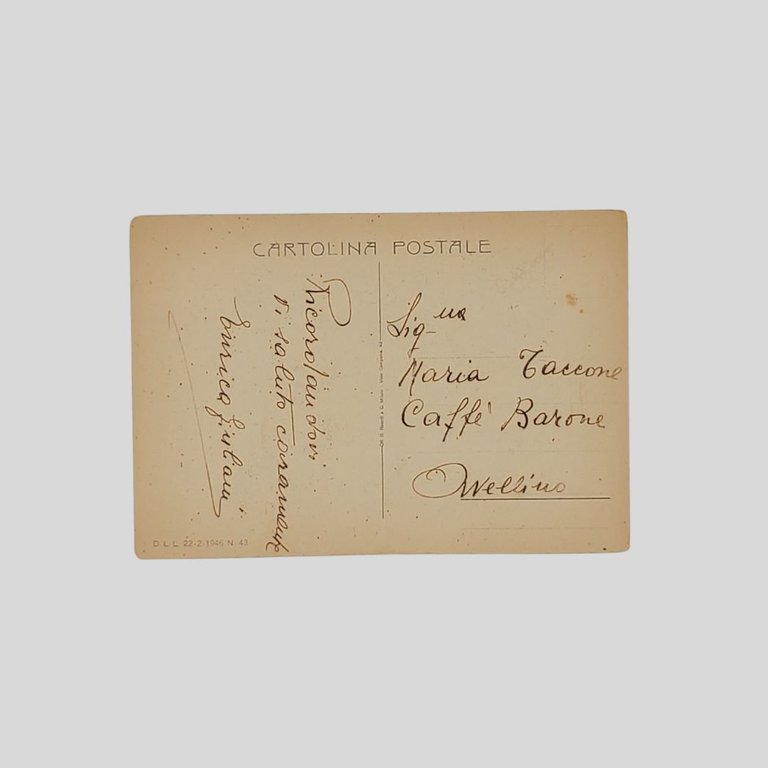 CARTOLINA POSTALE
Ricordandovi
vi saluto caramente
Enrica Giuliani
Sig.na
Maria Taccone
Caffè Barone
Avellino
D.L.L. 22-2-1946 N. 43